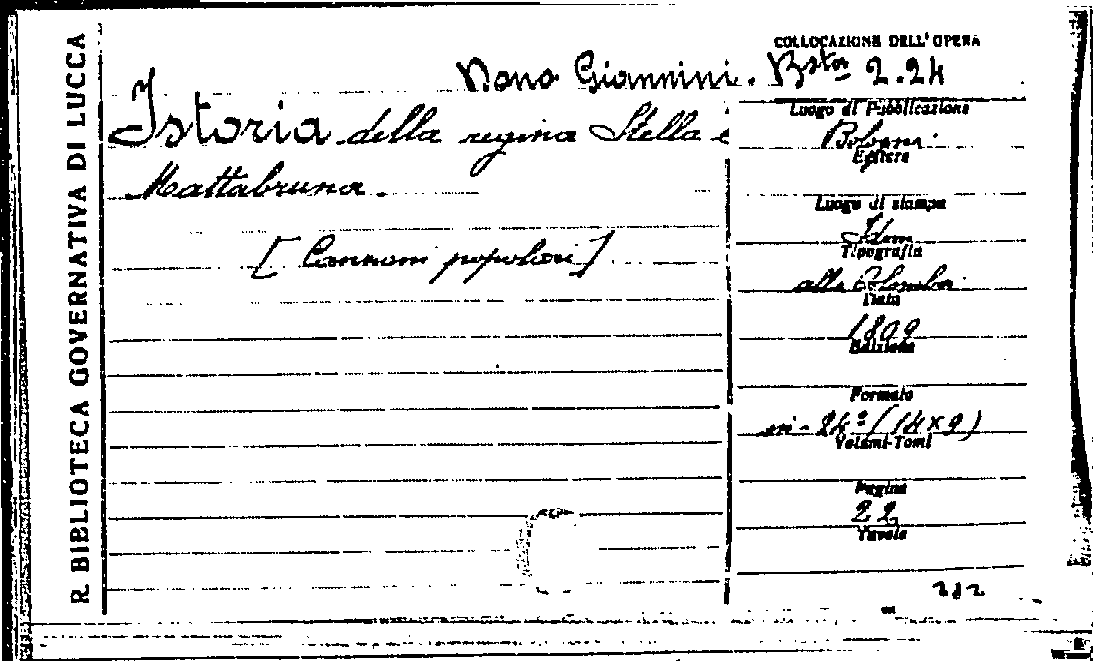 R. BIBLIOTECA GOVERNATIVA DI LUCCA
COLLOCAZIONE DELL'OPERA
Dono Giannini. Bsta 2.24
Istoria della regina Stella e
Mattabruna.
[Canzoni popolari]
Luogo di Pubblicazione
Bologna
Editore
Luogo di stampa
Idem
Tipografia
alla Colomba
Data
1809
Edizione
Formato
in-24º (14x9)
Volumi-Tomi
Pagine
22
Tavole